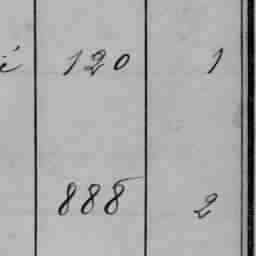 120 1
888 2